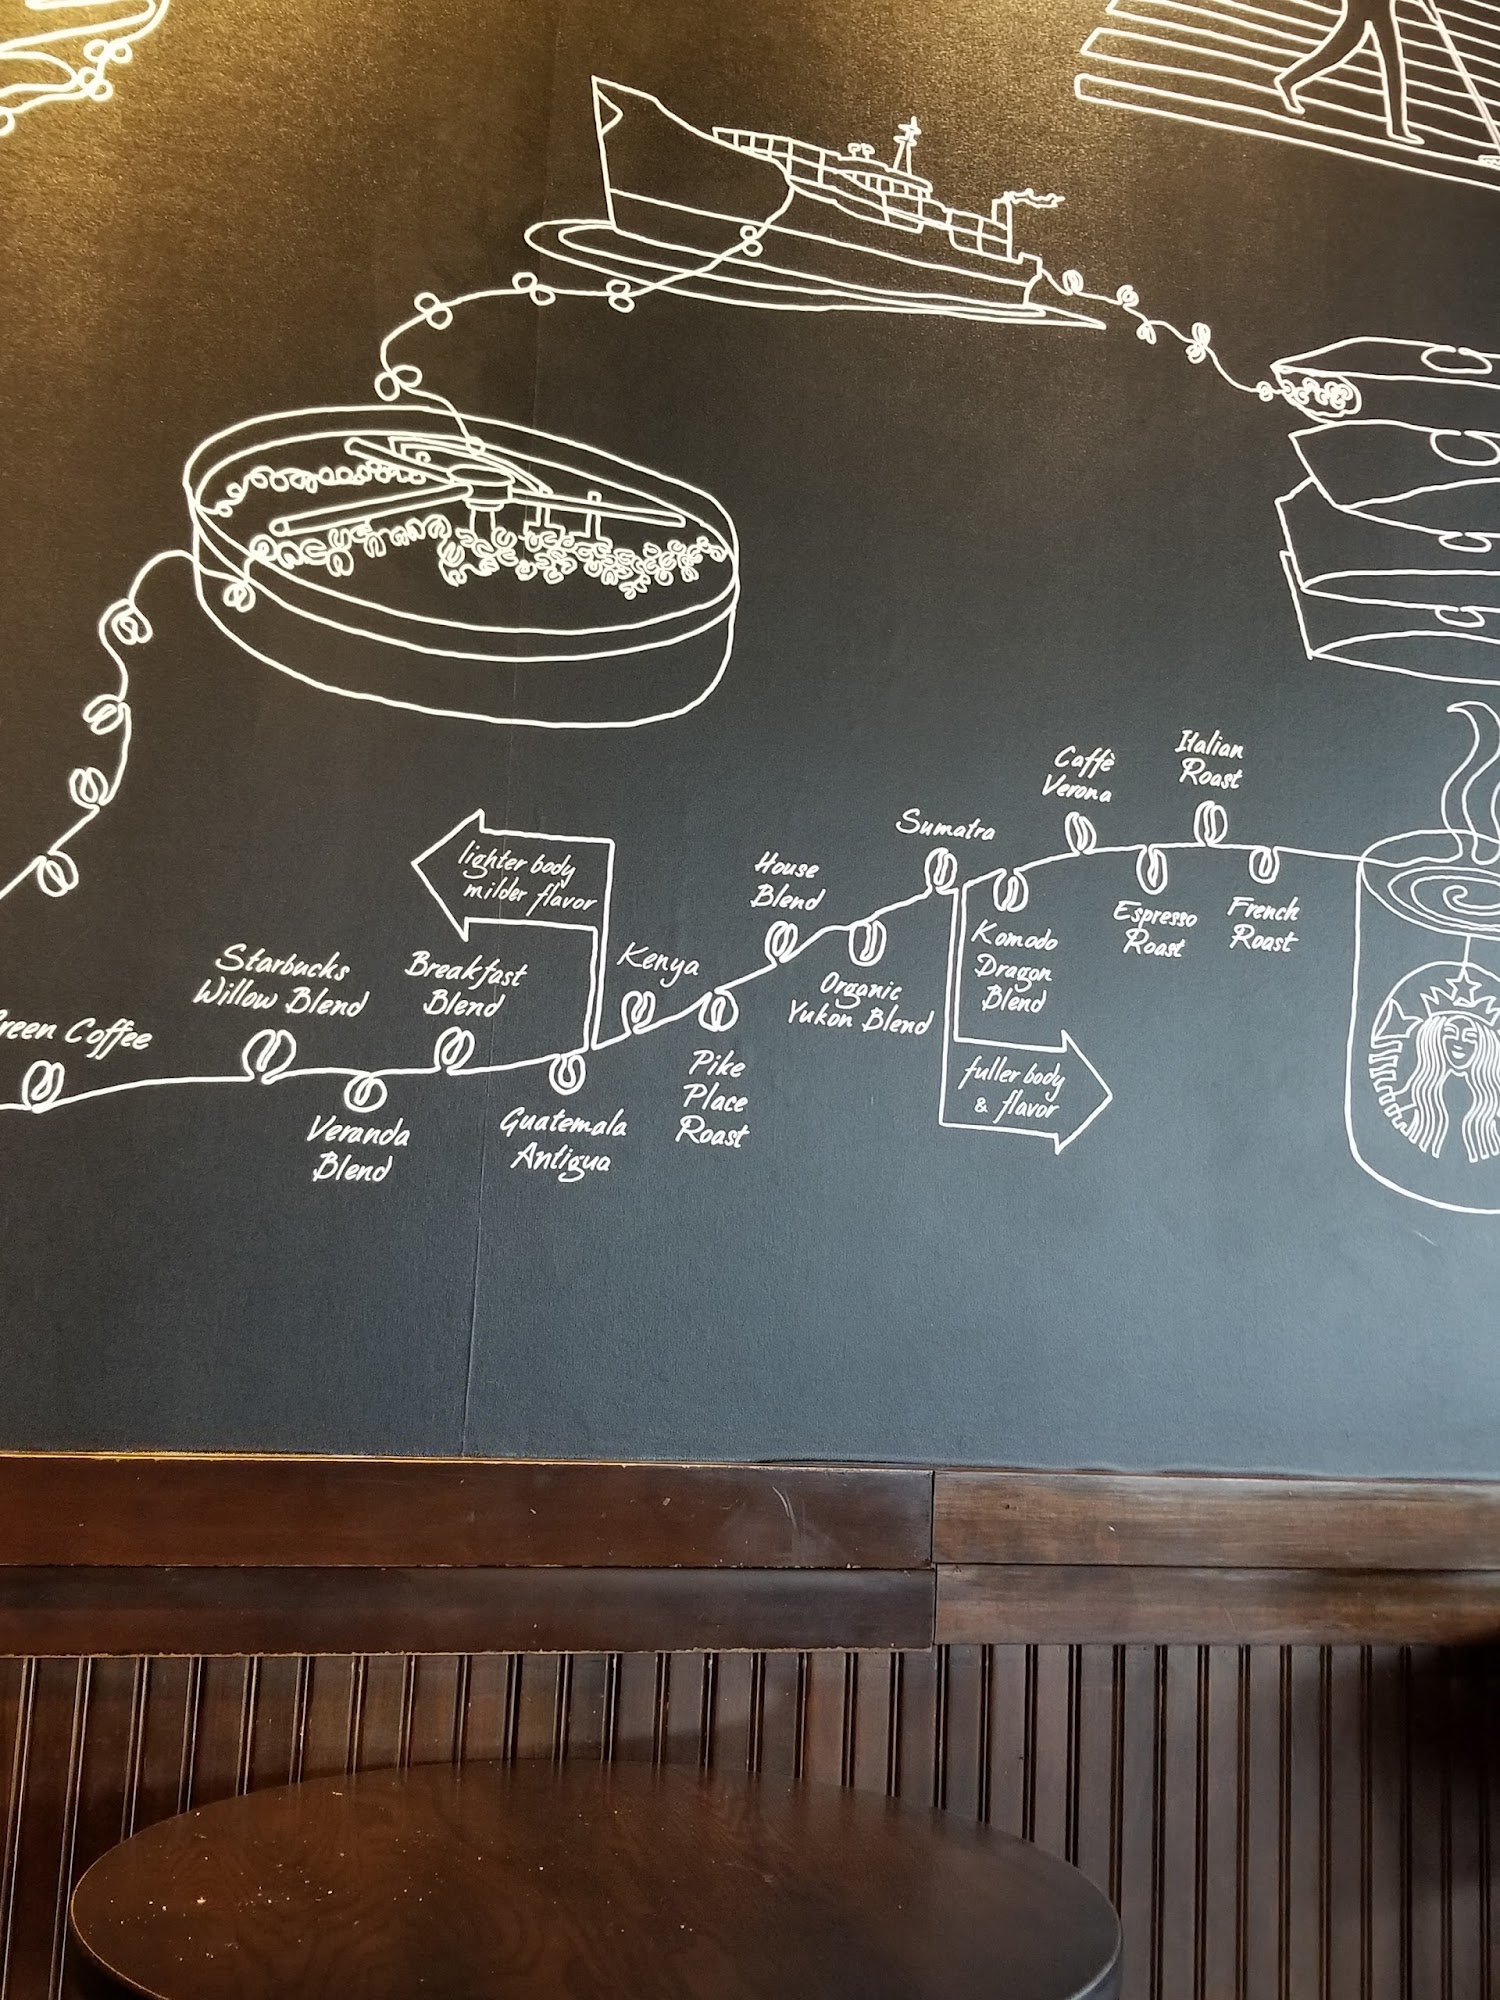 Coffee
Starbucks
Willow Blend
Veranda
Blend
Breakfast
Blend
lighter body
milder flavor
Guatemala
Antigua
Kenya
Pike
Place
Roast
House
Blend
Organic
Yukon Blend
Sumatra
Komodo
Dragon
Blend
fuller body
& flavor
Caffè
Verona
Espresso
Roast
Italian
Roast
French
Roast